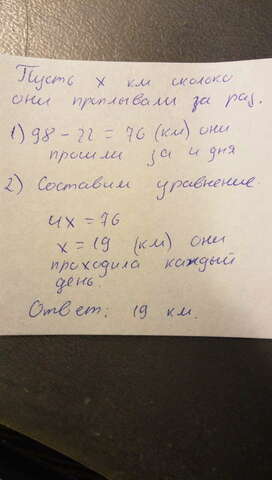 Пусть x км сколько
они проплывали за раз.
1) 98 - 22 = 76 (км) они
прошли за 4 дня
2) Составим уравнение.
4x = 76
x = 19 (км) они
проходила каждый
день.
Ответ: 19 км.